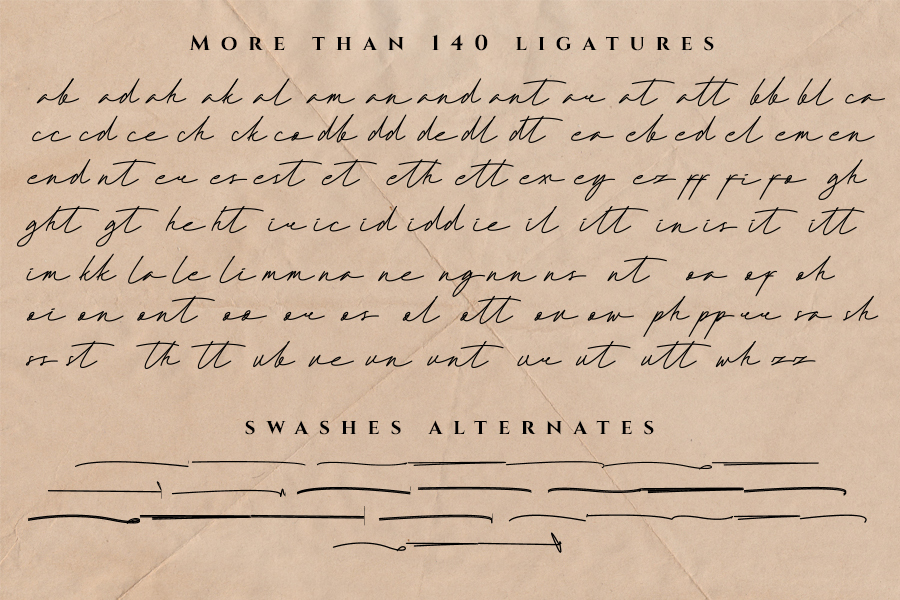 More than 140 ligatures
ab ad ah ak al am an and ant ar at att bb bl ca
cc cd ce ch ck co db dd de dl dt ea eb ed el em en
end nt er es est et eth ett ex ey ez ff fi fo gh
ght gt he ht ia ic id idd ie il ill in is it itt
im kk la le li mm na ne ng nn ns nt oa of oh
oi on ont oo or os ol ott ov ow ph pp rr sa sh
ss st th tt ub ve un unt ur ut utt wh zz
swashes alternates